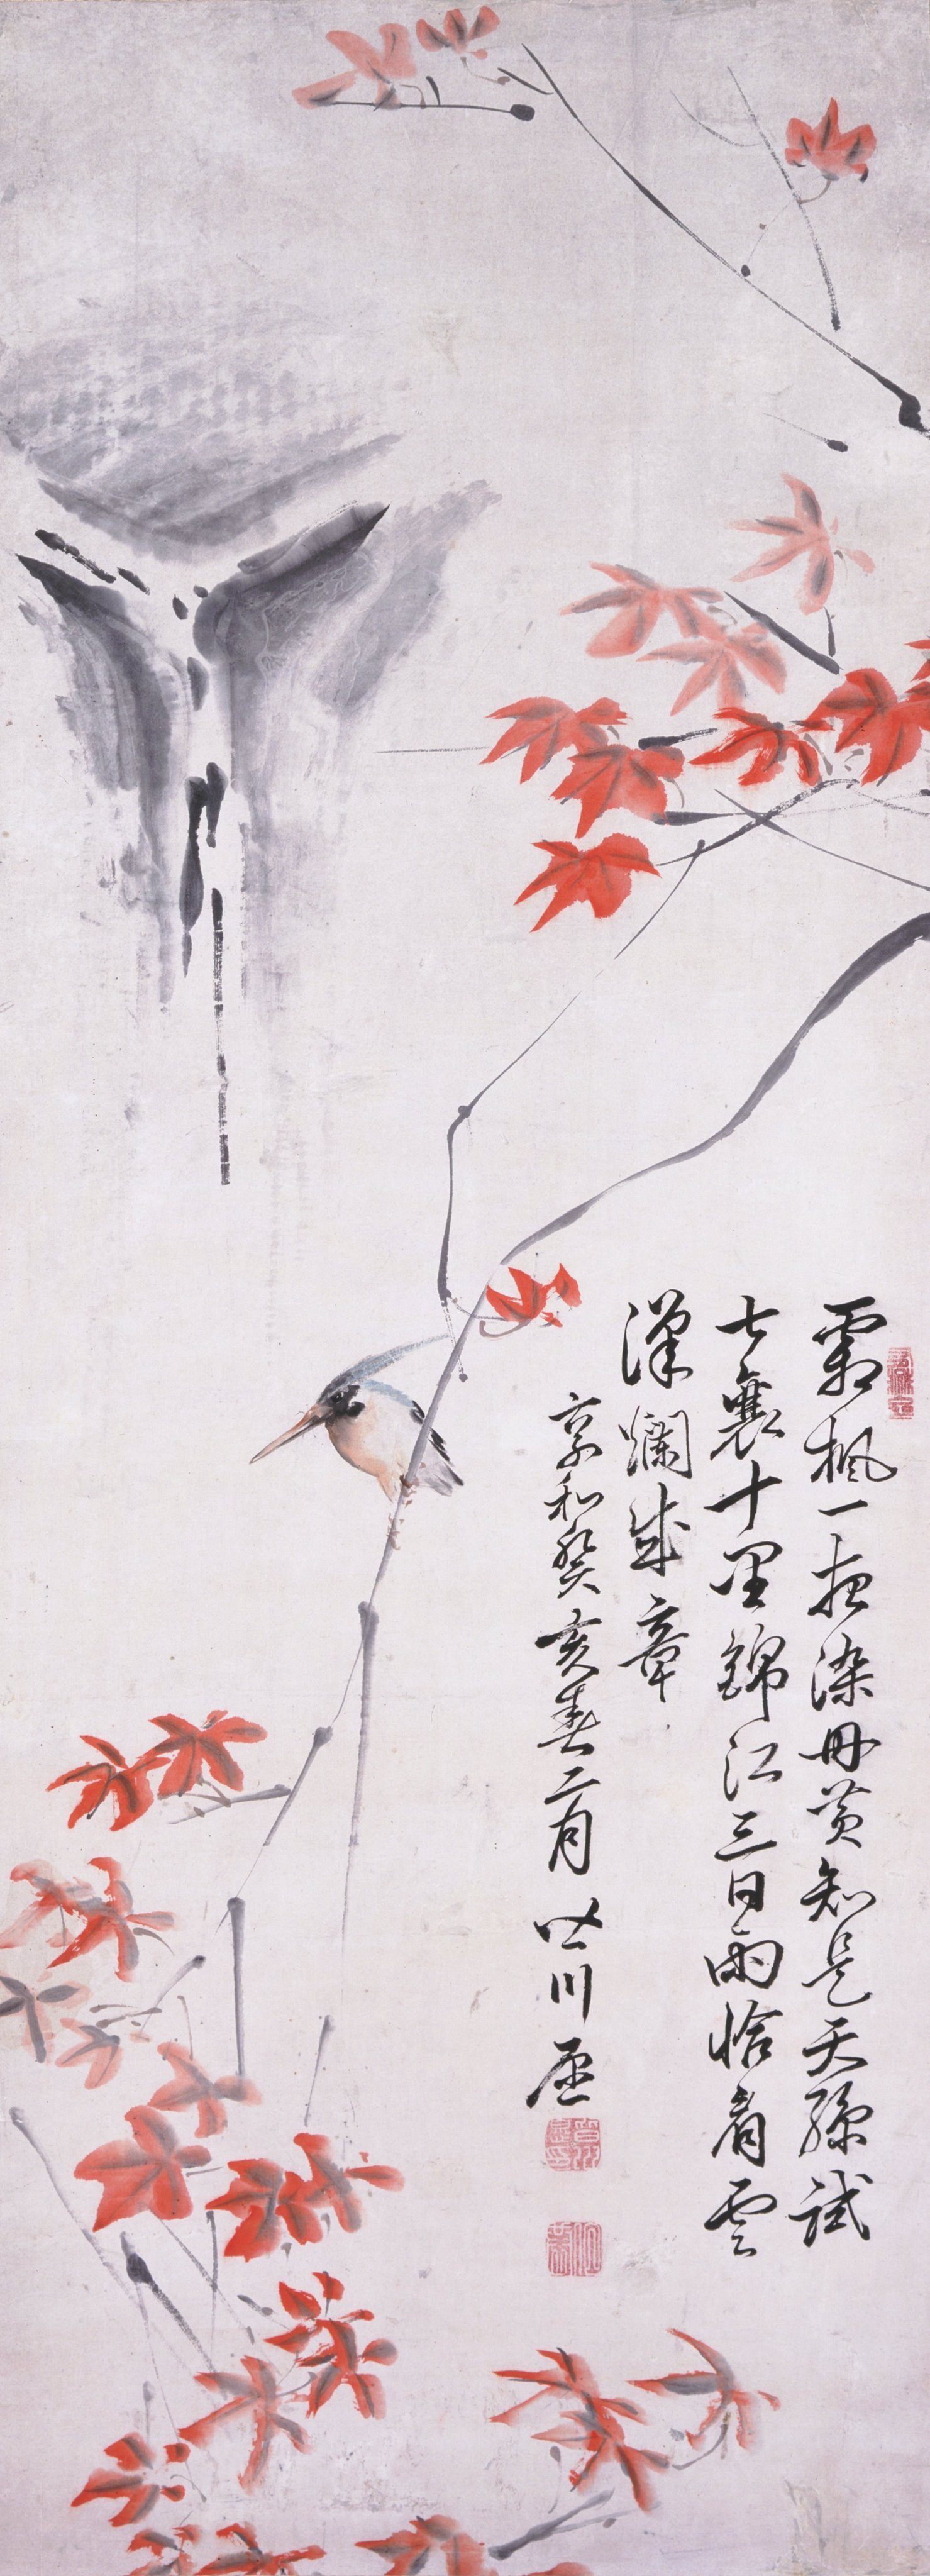 霜楓一夜染丹黄知是天孫試
七襄十里錦江三日雨恰看雲
漢爛成章
享和癸亥春二月 竹川堊